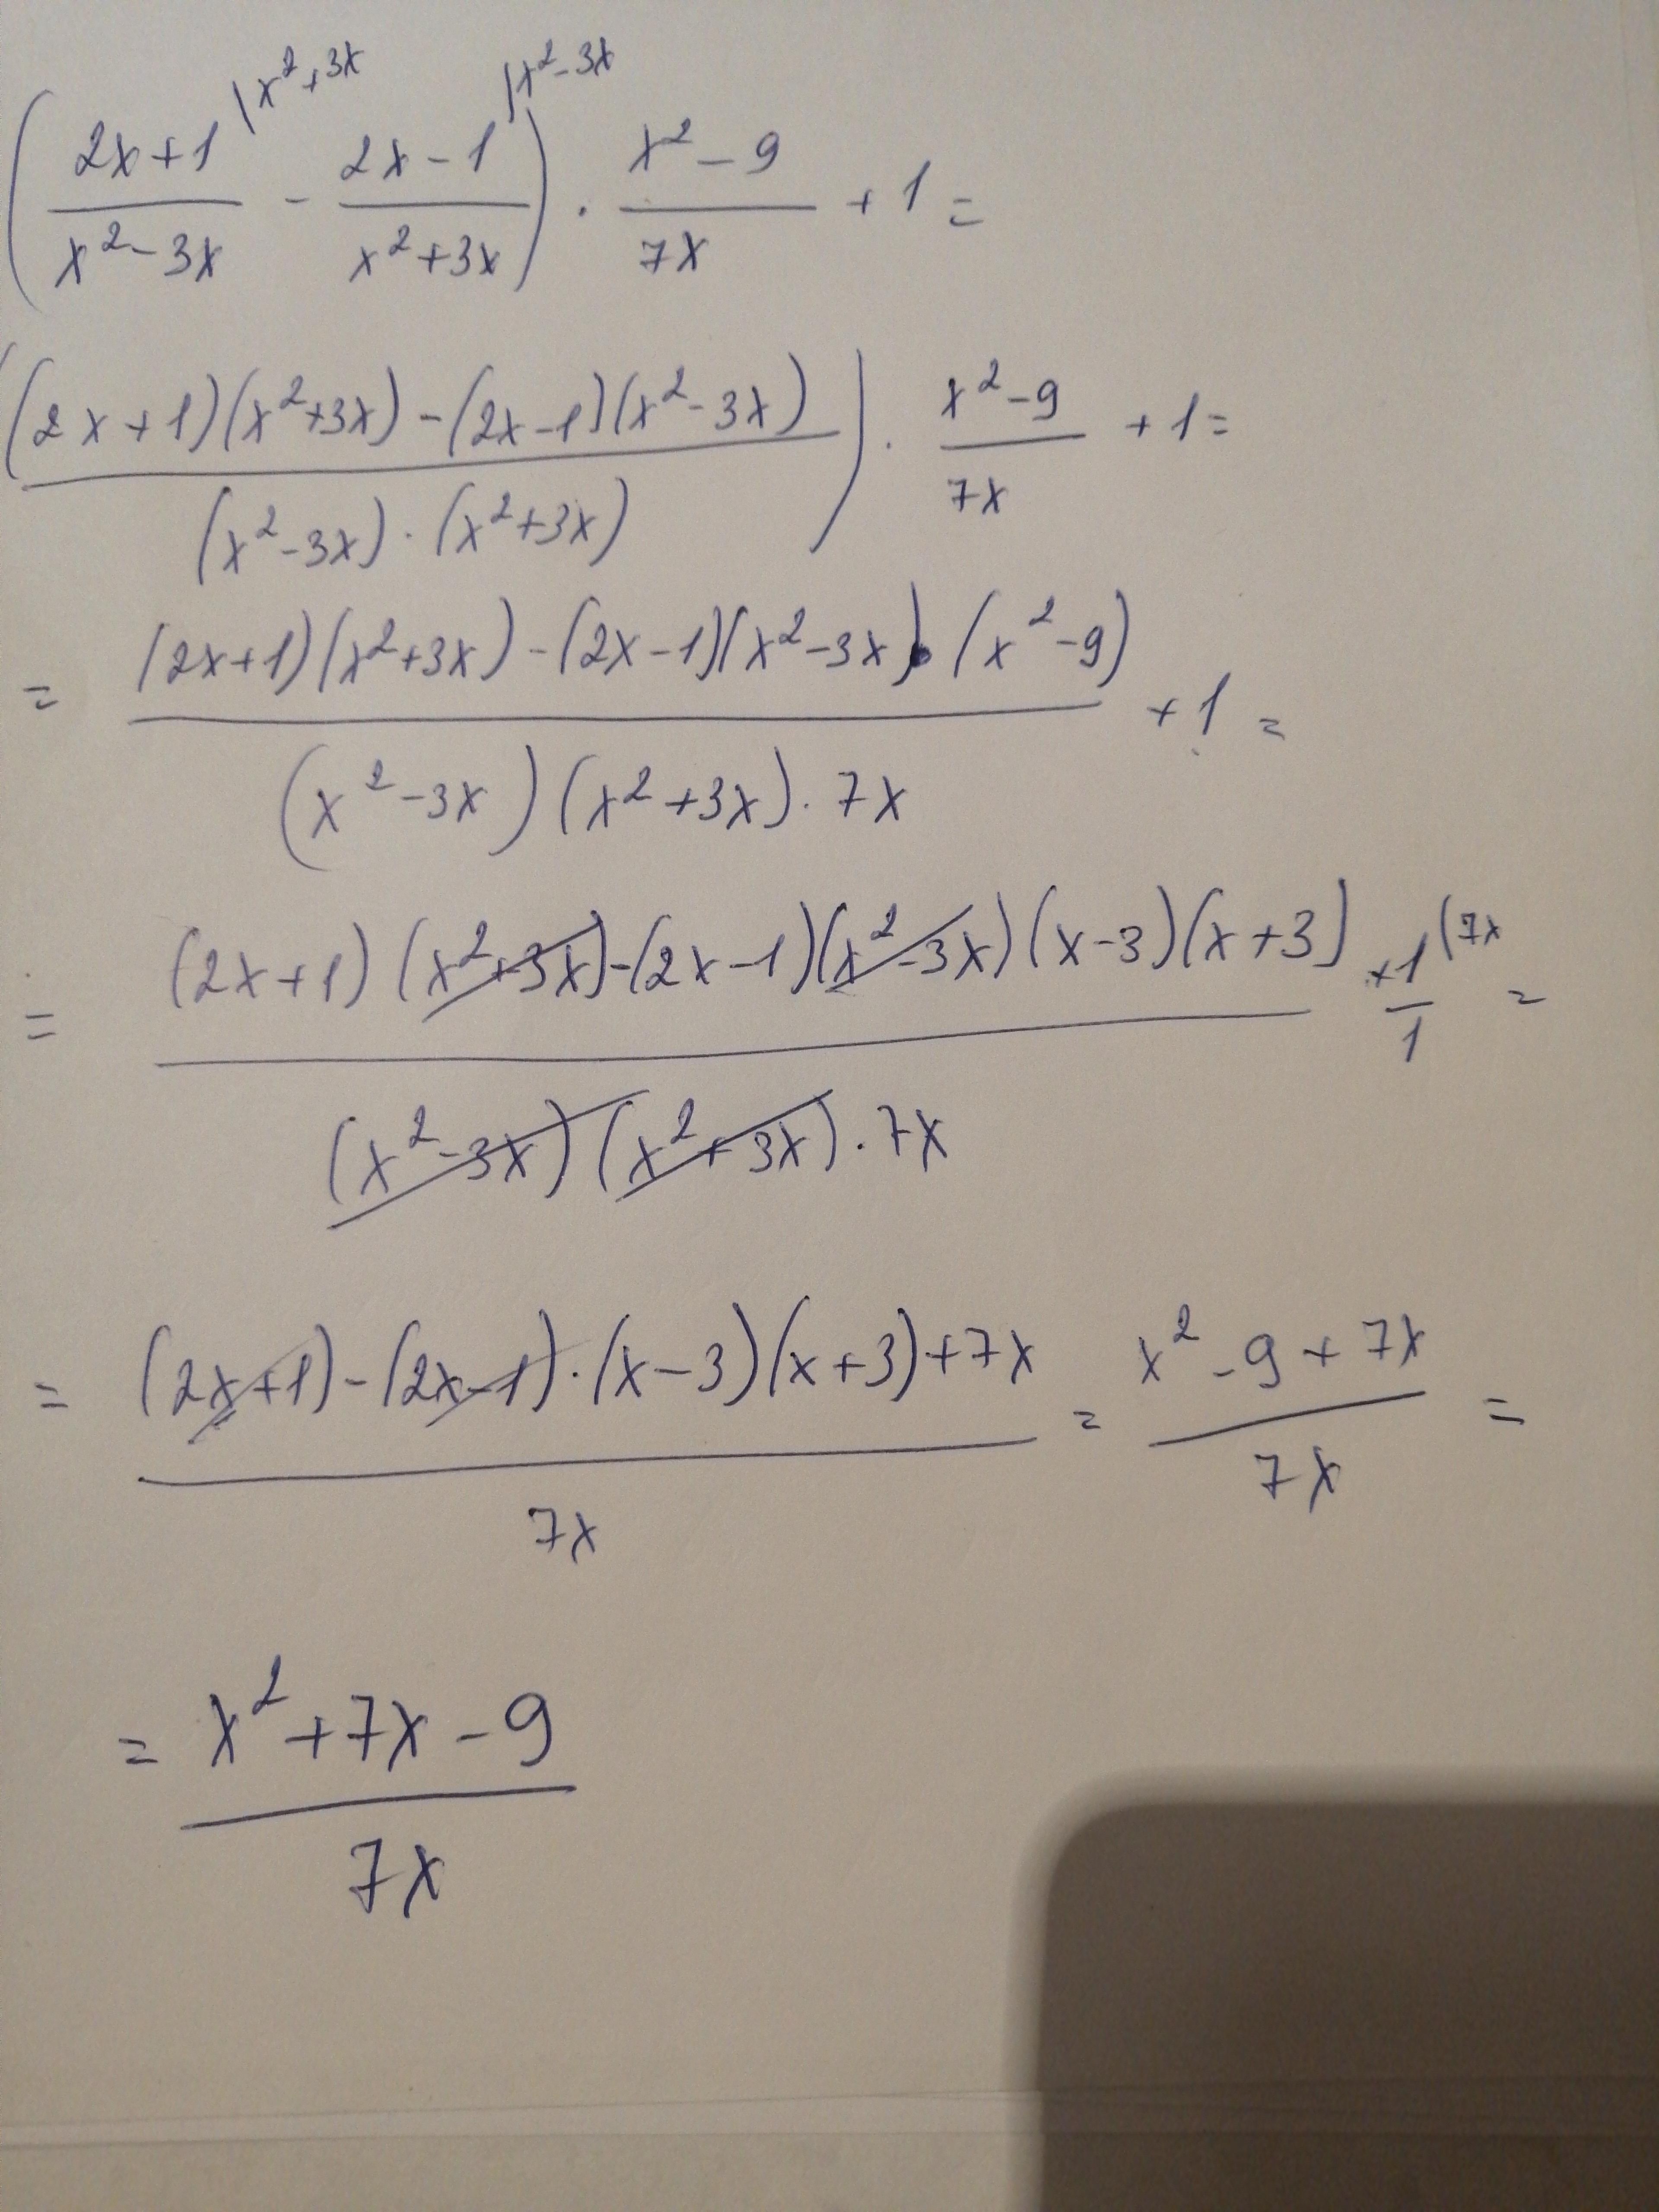 ( (2x+1)/(x²-3x) |x²+3x - (2x-1)/(x²+3x) |x²-3x ) · (x²-9)/(7x) + 1 =
( ((2x+1)(x²+3x)-(2x-1)(x²-3x))/((x²-3x)·(x²+3x)) ) · (x²-9)/(7x) + 1 =
= ((2x+1)(x²+3x)-(2x-1)(x²-3x)·(x²-9))/((x²-3x)(x²+3x)·7x) + 1 =
= ((2x+1)(x²+3x)-(2x-1)(x²-3x)(x-3)(x+3))/((x²-3x)(x²+3x)·7x) + 1/1 (7x =
= ((2x+1)-(2x-1)·(x-3)(x+3)+7x)/(7x) = (x²-9+7x)/(7x) =
= (x²+7x-9)/(7x)